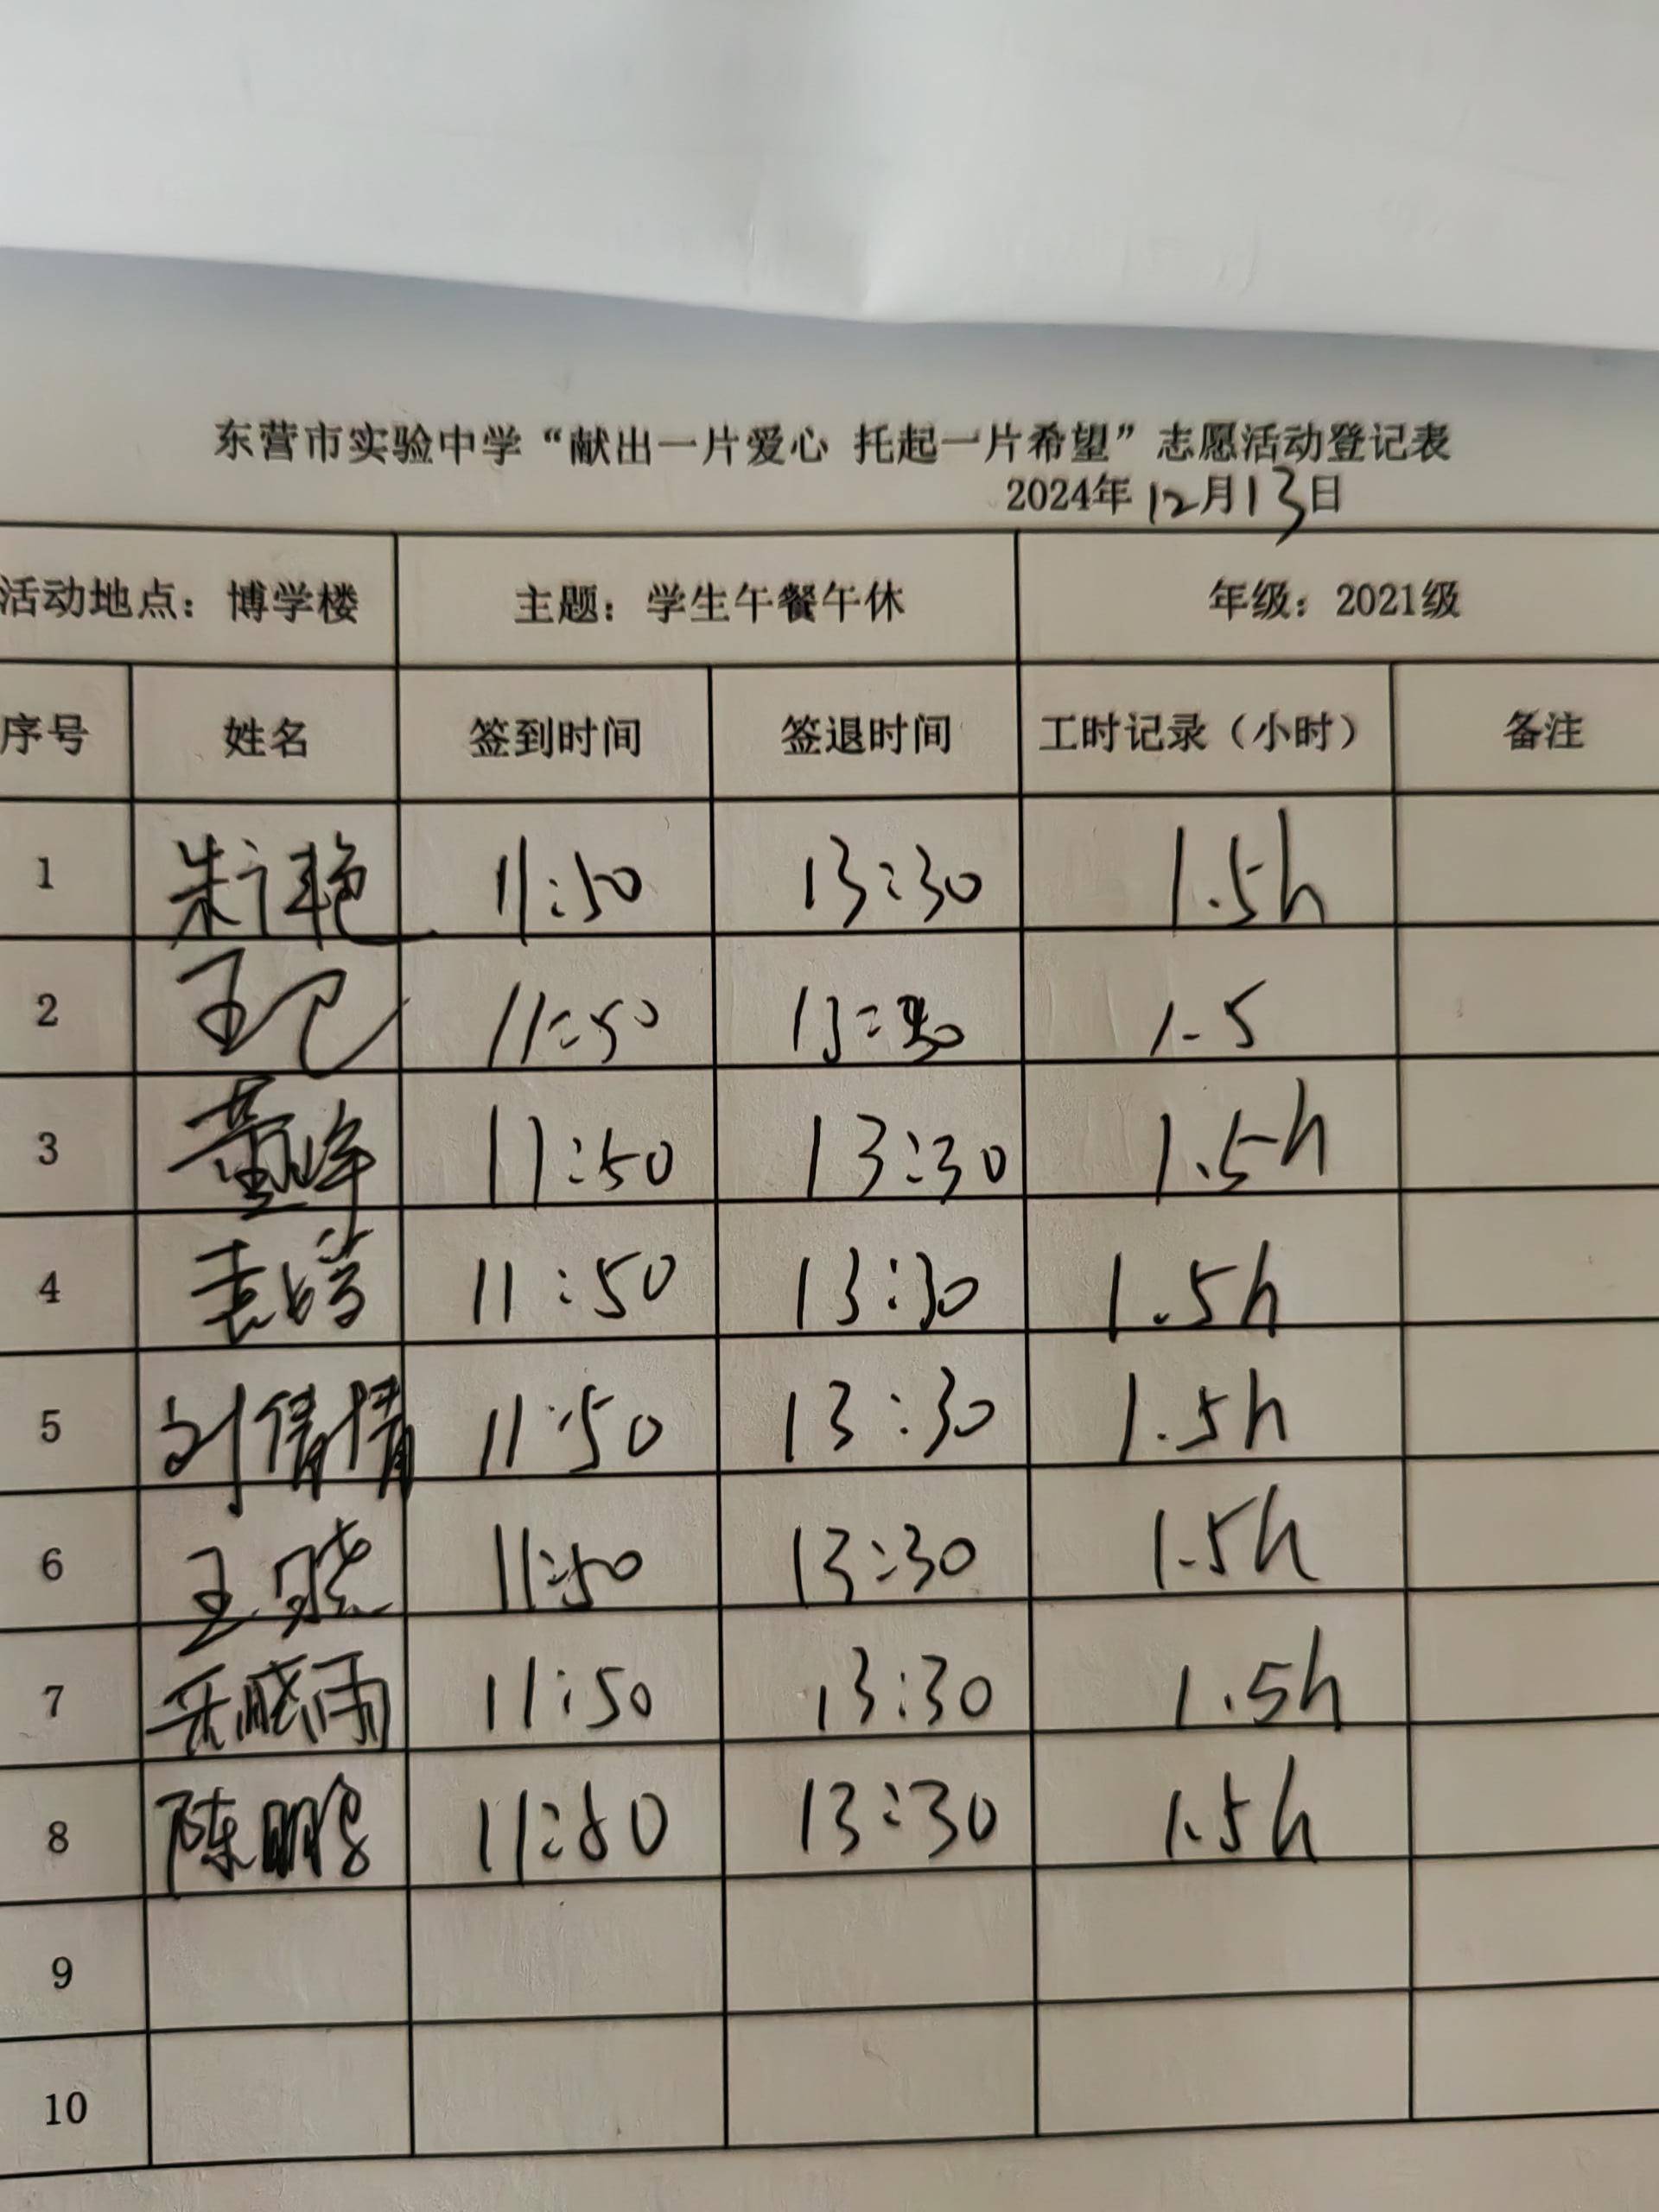 东营市实验中学“献出一片爱心 托起一片希望”志愿活动登记表
2024年12月13日
活动地点：博学楼 主题：学生午餐午休 年级：2021级
序号 姓名 签到时间 签退时间 工时记录（小时） 备注
1 朱 艳 11:50 13:30 1.5h
2 王 11:50 13:30 1.5
3 董 峰 11:50 13:30 1.5h
4 11:50 13:30 1.5h
5 刘倩倩 11:50 13:30 1.5h
6 王晓 11:50 13:30 1.5h
7 晓雨 11:50 13:30 1.5h
8 陈鹏 11:50 13:30 1.5h
9
10